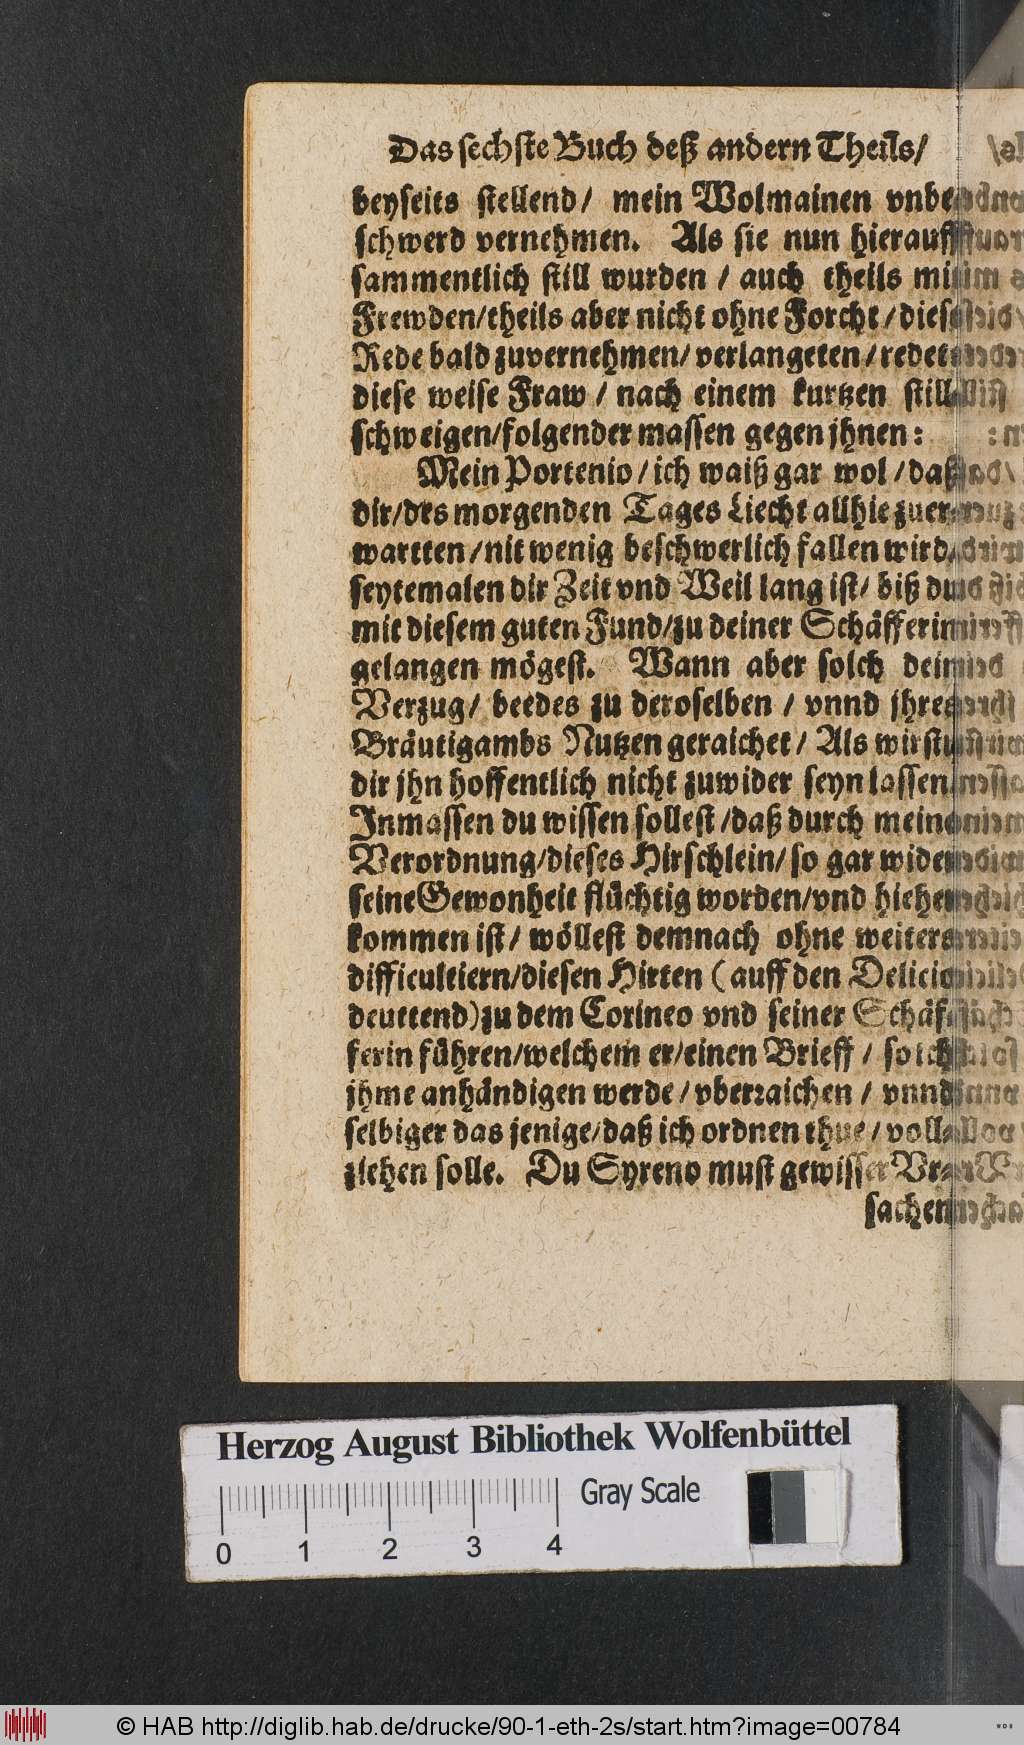 Das sechste Buch deß andern Theils/
beyseits stellend/ mein Wolmainen vnbe-
schwerd vernehmen. Als sie nun hierauff
sammentlich still wurden / auch theils mit
Frewden/theils aber nicht ohne Forcht/diese
Rede bald zuvernehmen/verlangeten/redet
diese weise Fraw / nach einem kurtzen still-
schweigen/folgender massen gegen jhnen:
Mein Portenio/ich waiß gar wol/daß
dir/des morgenden Tages Liecht allhie zuer-
wartten/nit wenig beschwerlich fallen wird/
seytemalen dir Zeit vnd Weil lang ist/ biß du
mit diesem guten Fund/zu deiner Schäfferin
gelangen mögest. Wann aber solch dein
Verzug/ beedes zu deroselben / vnnd jhres
Bräutigambs Nutzen geraichet/ Als wirstu
dir jhn hoffentlich nicht zuwider seyn lassen/
Inmassen du wissen sollest/daß durch mein
Verordnung/dieses Hirschlein/so gar wider
seine Gewonheit flüchtig worden/vnd hieher
kommen ist/ wöllest demnach ohne weiters
difficultiern/diesen Hirten (auff den Delicio
deuttend) zu dem Corineo vnd seiner Schäf-
ferin führen/welchem er/einen Brieff / so ich
jhme anhändigen werde/vberraichen / vnnd
selbiger das jenige/daß ich ordnen thue/voll-
ziehen solle. Du Syreno must gewisser Vr-
sachen
Herzog August Bibliothek Wolfenbüttel
Gray Scale
0 1 2 3 4
© HAB http://diglib.hab.de/drucke/90-1-eth-2s/start.htm?image=00784